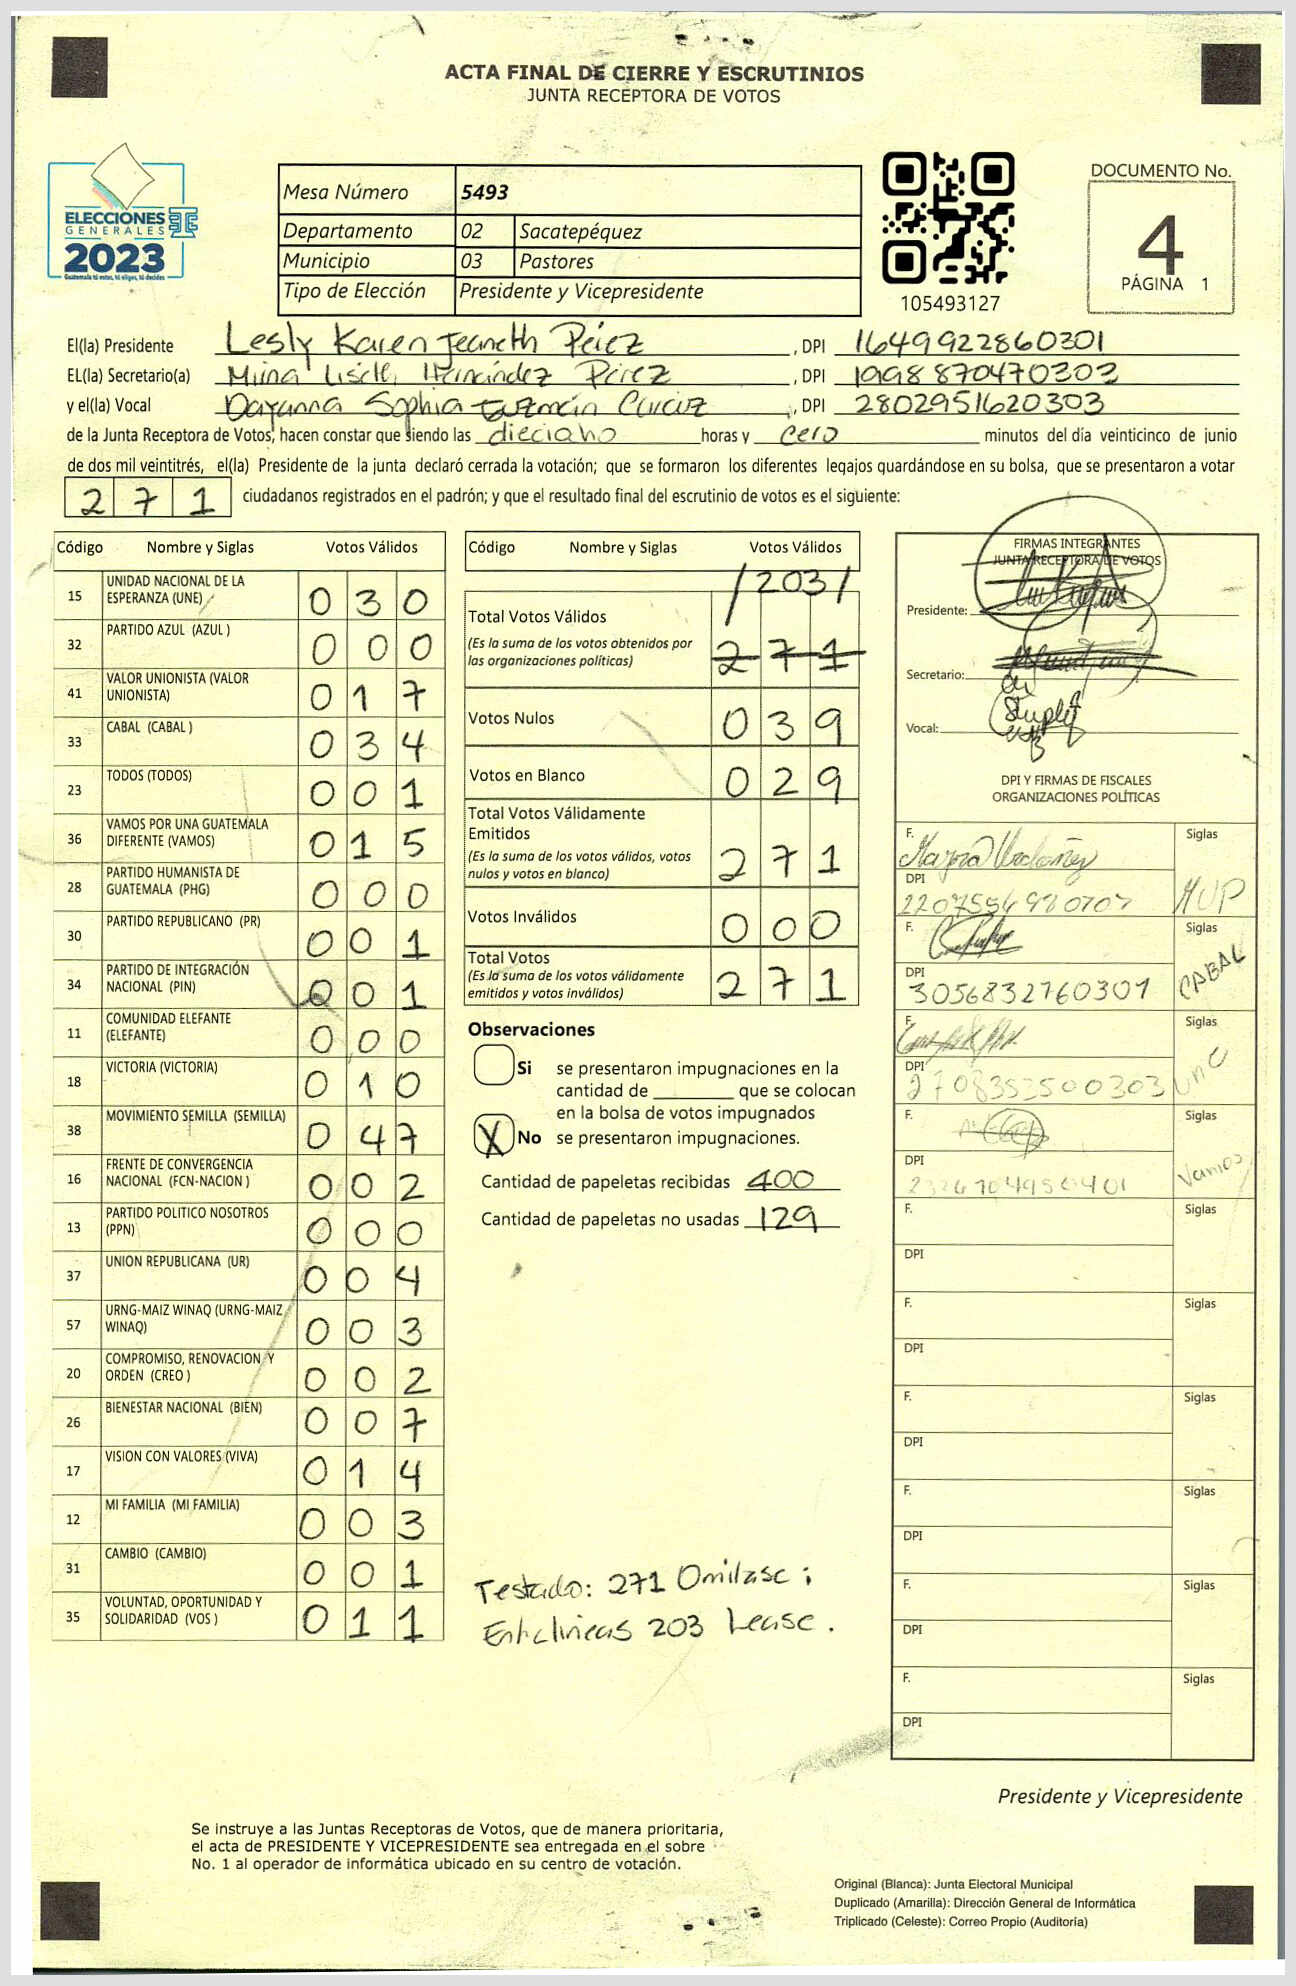 ACTA FINAL DE CIERRE Y ESCRUTINIOS
JUNTA RECEPTORA DE VOTOS
ELECCIONES
GENERALES
2023
Guatemala tú votas, tú eliges, tú decides
Mesa Número 5493
Departamento 02 Sacatepéquez
Municipio 03 Pastores
Tipo de Elección Presidente y Vicepresidente
105493127
DOCUMENTO No.
4
PÁGINA 1
El(la) Presidente Lesly Karen Jeaneth Pérez , DPI 1649922860301
EL(la) Secretario(a) Mirna Liseth Hernández Pérez , DPI 1998870470303
y el(la) Vocal Dayanna Sophia Guzmán , DPI 2802951620303
de la Junta Receptora de Votos, hacen constar que siendo las dieciaho horas y cero minutos del día veinticinco de junio
de dos mil veintitrés, el(la) Presidente de la junta declaró cerrada la votación; que se formaron los diferentes legajos quardándose en su bolsa, que se presentaron a votar
271 ciudadanos registrados en el padrón; y que el resultado final del escrutinio de votos es el siguiente:
Código Nombre y Siglas Votos Válidos
15 UNIDAD NACIONAL DE LA ESPERANZA (UNE) 030
32 PARTIDO AZUL (AZUL ) 000
41 VALOR UNIONISTA (VALOR UNIONISTA) 017
33 CABAL (CABAL ) 034
23 TODOS (TODOS) 001
36 VAMOS POR UNA GUATEMALA DIFERENTE (VAMOS) 015
28 PARTIDO HUMANISTA DE GUATEMALA (PHG) 000
30 PARTIDO REPUBLICANO (PR) 001
34 PARTIDO DE INTEGRACIÓN NACIONAL (PIN) 001
11 COMUNIDAD ELEFANTE (ELEFANTE) 000
18 VICTORIA (VICTORIA) 010
38 MOVIMIENTO SEMILLA (SEMILLA) 047
16 FRENTE DE CONVERGENCIA NACIONAL (FCN-NACION ) 002
13 PARTIDO POLITICO NOSOTROS (PPN) 000
37 UNION REPUBLICANA (UR) 004
57 URNG-MAIZ WINAQ (URNG-MAIZ WINAQ) 003
20 COMPROMISO, RENOVACION Y ORDEN (CREO ) 002
26 BIENESTAR NACIONAL (BIEN) 007
17 VISION CON VALORES (VIVA) 014
12 MI FAMILIA (MI FAMILIA) 003
31 CAMBIO (CAMBIO) 001
35 VOLUNTAD, OPORTUNIDAD Y SOLIDARIDAD (VOS ) 011
Código Nombre y Siglas Votos Válidos
/203/
Total Votos Válidos
(Es la suma de los votos obtenidos por las organizaciones políticas) 271
Votos Nulos 039
Votos en Blanco 029
Total Votos Válidamente Emitidos
(Es la suma de los votos válidos, votos nulos y votos en blanco) 271
Votos Inválidos 000
Total Votos
(Es la suma de los votos válidamente emitidos y votos inválidos) 271
Observaciones
Si se presentaron impugnaciones en la
cantidad de ________ que se colocan
en la bolsa de votos impugnados
X No se presentaron impugnaciones.
Cantidad de papeletas recibidas 400
Cantidad de papeletas no usadas 129
Testado: 271 Omitase;
Entrelineas 203 Lease.
FIRMAS INTEGRANTES
JUNTA RECEPTORA DE VOTOS
Presidente:
Secretario:
Vocal:
DPI Y FIRMAS DE FISCALES
ORGANIZACIONES POLÍTICAS
F. Siglas
DPI MLP
F. Siglas
DPI 3056832760301 CABAL
F. Siglas
DPI 2708353500303 UNE
F. Siglas
DPI Vamos
F. Siglas
DPI
F. Siglas
DPI
F. Siglas
DPI
F. Siglas
DPI
F. Siglas
DPI
F. Siglas
DPI
Presidente y Vicepresidente
Se instruye a las Juntas Receptoras de Votos, que de manera prioritaria,
el acta de PRESIDENTE Y VICEPRESIDENTE sea entregada en el sobre
No. 1 al operador de informática ubicado en su centro de votación.
Original (Blanca): Junta Electoral Municipal
Duplicado (Amarilla): Dirección General de Informática
Triplicado (Celeste): Correo Propio (Auditoría)